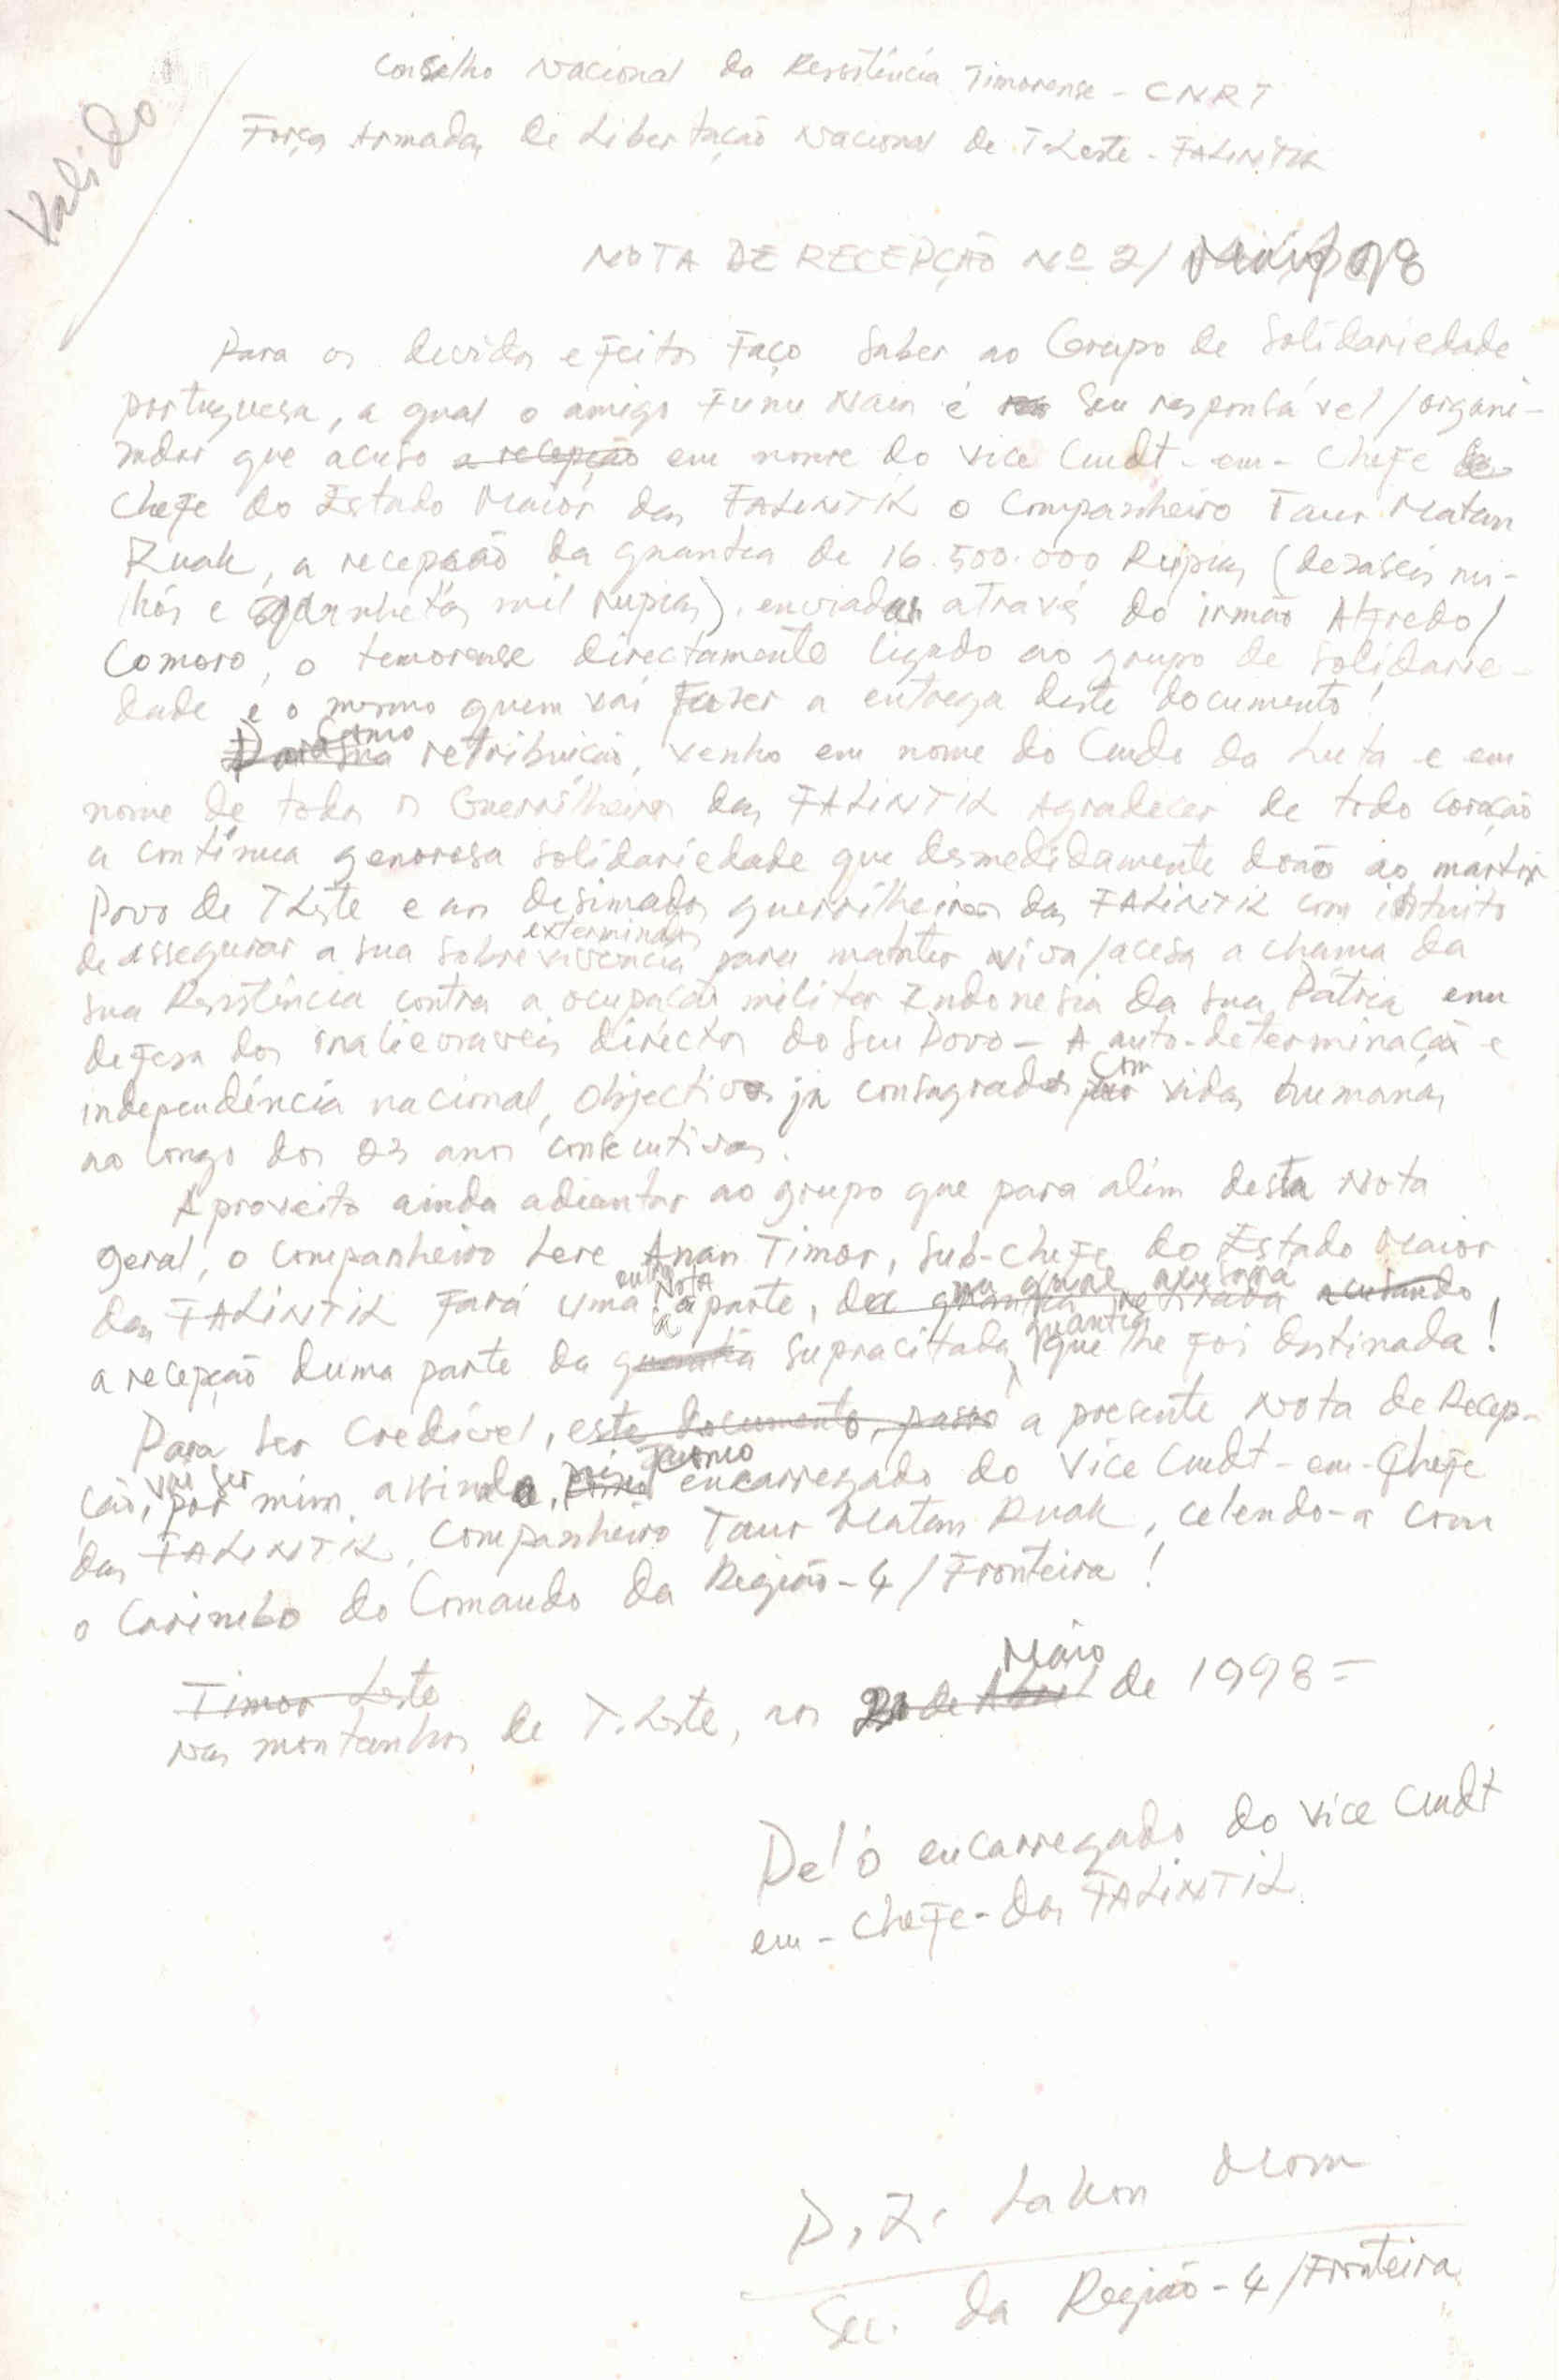 Valido
Conselho Nacional da Resistência Timorense - CNRT
Força Armada de Libertação Nacional de T-Leste - FALINTIL
NOTA DE RECEPÇÃO Nº 2/ 98
Para os devidos efeitos faço saber ao Grupo de Solidariedade
portuguesa, a qual o amigo Funu Nain é seu responsável/organi-
zador que acuso a recepção em nome do Vice Cmdt-em-Chefe
Chefe do Estado Maior das FALINTIL o Companheiro Taur Matan
Ruak, a recepção da quantia de 16.500.000 Rupias (dezaseis mi-
lhós e mil rupias), enviadas através do irmão Alfredo/
Comoro, o temorense directamente ligado ao grupo de solidarie-
dade e o mesmo quem vai fazer a entrega deste documento!
Como retribuição, venho em nome do Cmdo da Luta e em
nome de todos os Guerrilheiros das FALINTIL agradecer de todo coração
a contínua generosa solidariedade que desmedidamente doão ao martir
Povo de TLeste e aos desimados guerrilheiros das FALINTIL com intuito
exterminados
de assegurar a sua sobrevivência para manter viva/acesa a chama da
sua Resistência contra a ocupação militar Indonesia da sua Pátria em
defesa dos inalienaveis directos do seu Povo - A auto-determinação e
independência nacional, objectivos já consagrados com vidas humanas
ao longo dos 23 anos consecutivos.
Aproveito ainda adiantar ao grupo que para além desta Nota
geral, o Companheiro Lere Anan Timor, Sub-Chefe do Estado Maior
outra Nota na qual acusará
das FALINTIL fará uma à parte, da quantia retirada acusando,
quantia
a recepção duma parte da quantia supracitada que lhe foi destinada!
Para ser credível, este documento, passo a presente Nota de Recep-
vai ser como
ção, por mim assinada, encarregado do Vice Cmdt-em-Chefe
das FALINTIL, Companheiro Taur Matan Ruak, celendo-a com
o Carimbo do Comando da Região-4/Fronteira!
Maio
Timor Leste
Nas montanhas de T.Leste, aos de 1998=
Pel'o encarregado do Vice Cmdt
em-Chefe-das FALINTIL
P.Z. Lakon Mom
Sec. da Região-4/Fronteira